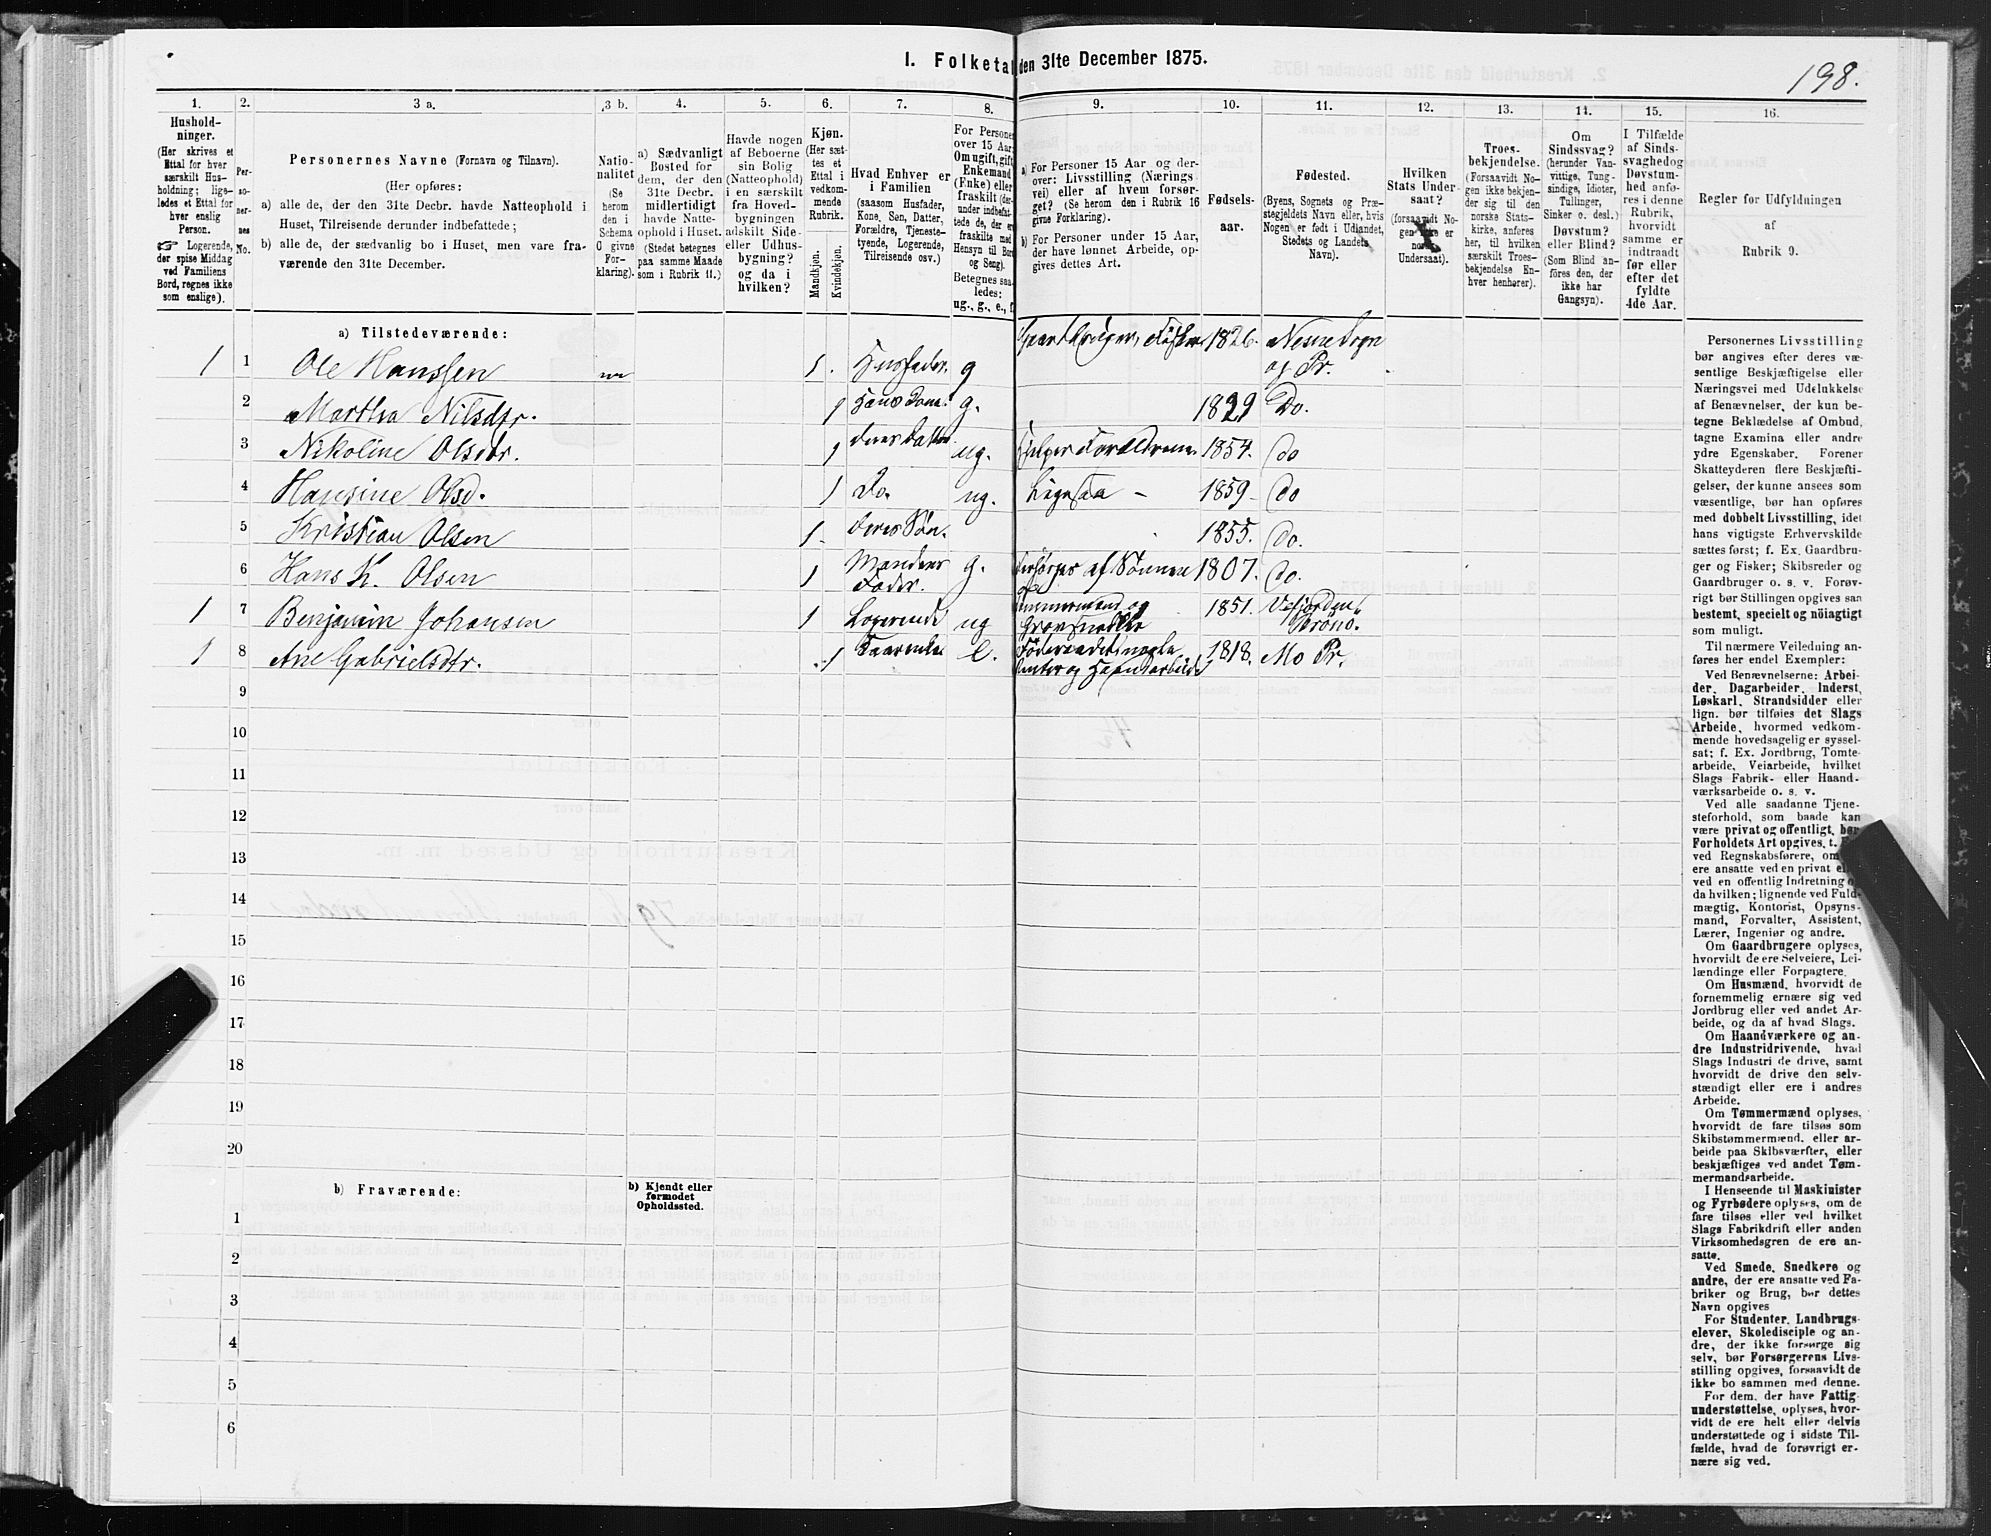 I. Folketal den 31te December 1875.
198.
1. 2. 3 a. 3 b. 4. 5. 6. 7. 8. 9. 10. 11. 12. 13. 14. 15. 16.
Hushold-
ninger.
(Her skrives et
Ettal for hver
særskilt Hus-
holdning; lige-
ledes et Ettal for
hver enslig
Person.
☞ Logerende,
der spise Middag
ved Familiens
Bord, regnes ikke
som enslige).
Per-
so-
ner-
nes
No.
Personernes Navne (Fornavn og Tilnavn).
(Her opføres:
a) alle de, der den 31te Decbr. havde Natteophold i
Huset, Tilreisende derunder indbefattede;
b) alle de, der sædvanlig bo i Huset, men vare fra-
værende den 31te December.
Natio-
nalitet
(Se
herom
den i
Schema
O givne
For-
klaring).
a) Sædvanligt
Bosted for
dem, der den
31te Decbr.
midlertidigt
havde Natte-
ophold i Huset.
(Stedet betegnes
paa samme Maade
som i Rubrik 11.)
Havde nogen
af Beboerne
sin Bolig
(Natteophold)
i en særskilt
fra Hoved-
bygningen
adskilt Side-
eller Udhus-
bygning?
og da i
hvilken?
Kjøn.
(Her sæt-
tes et
Ettal i
vedkom-
mende
Rubrik.
Mandkjøn.
Kvindekjøn.
Hvad Enhver er
i Familien
(saasom Husfader,
Kone, Søn, Datter,
Forældre, Tjeneste-
tyende, Logerende,
Tilreisende osv.)
For Personer
over 15 Aar:
Om ugift, gift,
Enkemand
(Enke) eller
fraskilt (der-
under indbefat-
tede de, der er
fraskilte med
Hensyn til Bord
og Seng).
Betegnes saa-
ledes:
ug., g., e., f.
a) For Personer 15 Aar og der-
over: Livsstilling (Nærings-
vei) eller af hvem forsør-
get? (Se herom den i Rubrik 16
givne Forklaring).
b) For Personer under 15 Aar,
der have lønnet Arbeide, op-
gives dettes Art.
Fødsels-
aar.
Fødested.
(Byens, Sognets og Præ-
stegjeldets Navn eller, hvis
Nogen er født i Udlandet,
Stedets og Landets
Navn).
Hvilken
Stats Under-
saat?
(forsaavidt No-
gen ikke er
norsk
Undersaat).
Troes-
bekjendelse.
(Forsaavidt No-
gen ikke bekjen-
der sig til den
norske Stats-
kirke, anføres
her, til hvilken
særskilt Troes-
bekjendelse En-
hver henhører).
Om
Sindssvag?
(herunder Van-
vittige, Tung-
sindige, Idioter,
Tullinger,
Sinker o. desl.)
Døvstum?
eller Blind?
(Som Blind an-
føres den, der
ikke har
Gangsyn).
I Tilfælde
af Sinds-
svaghed og
Døvstum-
hed anfø-
res i denne
Rubrik,
hvorvidt
samme er
indtraadt
før eller
efter det
fyldte
4de Aar.
Regler for Udfyldningen
af
Rubrik 9.
a) Tilstedeværende:
1 1 Ole Hanssen 1. Husfader g 1826. Nesne Sogn og Pr.
2 Martha Nilsdtr. 1 Hans Kone g. 1829 Do.
3 Nikoline Olsdtr. 1 deres Datter ug. Hjelper Forældrene 1854. Do
4 Hansine Olsd. 1 Do. ug. Ligesaa 1859 Do
5 Kristian Olsen 1 deres Søn. 1855. Do.
6 Hans K. Olsen 1 Mandens Fader. g. Forsørges af Sønnen 1807. Do.
1 7 Benjamin Johansen 1 Logerende ug Tømmermand og 1851. Vefsjorden
1 8 Ane Gabrielsdtr. 1 e. 1818. Mo Pr.
9
10
11
12
13
14
15
16
17
18
19
20
b) Fraværende:
b) Kjendt eller
formodet
Opholdssted.
1
2
3
4
5
6
Personernes Livsstilling
bør angives efter deres væ-
sentlige Beskjæftigelse eller
Næringsvei med Udelukkelse
af Benævnelser, der kun be-
tegne Beklædelse af Ombud,
tagne Examina eller andre
ydre Egenskaber. Forener
Skatteyderen flere Beskjæfti-
gelser, der kunne ansees som
væsentlige, bør han opføres
med dobbelt Livsstilling, idet
hans vigtigste Erhvervskilde
sættes først; f. Ex. Gaardbru-
ger og Fisker; Skibsreder og
Gaardbruger o. s. v. Forøv-
rigt bør Stillingen opgives saa
bestemt, specielt og nöiagtigt
som muligt.
Til nærmere Veiledning an-
føres her endel Exempler:
Ved Benævnelserne: Arbei-
der, Dagarbeider, Inderst,
Løskarl, Strandsidder eller
lign. bør tilføies det Slags
Arbeide, hvormed vedkom-
mende hovedsagelig er syssel-
sat; f. Ex. Jordbrug, Tomte-
arbeide, Veiarbeide, hvilket
Slags Fabrik- eller Haand-
værksarbeide o. s. v.
Ved alle saadanne Tjene-
steforhold, som baade kan
være privat og offentligt, bør
Forholdets Art opgives, t.
ved Regnskabsførere, om
ere ansatte ved en privat
ved en offentlig Indretning
da hvilken; lignende ved Fuld-
mægtig, Kontorist, Opsyns-
mand, Forvalter, Assistent,
Lærer, Ingeniør og andre.
Om Gaardbrugere oplyses,
hvorvidt de ere Selveiere, Lei-
lændinge eller Forpagtere.
Om Husmænd, hvorvidt de
fornemmelig ernære sig ved
Jordbrug eller ved andet Ar-
beide, og da af hvad Slags.
Om Haandværkere og an-
dre Industridrivende, hvad
Slags Industri de drive, samt
hvorvidt de drive den selv-
stændigt eller ere i andres
Arbeide.
Om Tømmermænd oplyses,
hvorvidt de fare tilsøs som
Skibstømmermænd, eller ar-
beide paa Skibsværfter, eller
beskjæftiges ved andet Tøm-
mermandsarbeide.
I Henseende til Maskinister
og Fyrbødere oplyses, om de
fare tilsøs eller ved hvilket
Slags Fabrikdrift eller anden
Virksomhedsgren de ere an-
satte.
Ved Smede, Snedkere og
andre, der ere ansatte ved Fa-
briker og Brug, bør dettes
Navn opgives
For Studenter, Landbrugs-
elever, Skoledisciple og an-
dre, der ikke forsørge sig
selv, bør Forsørgerens Livs-
stilling opgives, forsaavidt de
ikke bo sammen med denne.
For dem, der have Fattig-
understøttelse, oplyses, hvor-
vidt de ere helt eller delvis
understøttede og i sidste Til-
fælde, hvad de forøvrigt er-
nære sig ved.